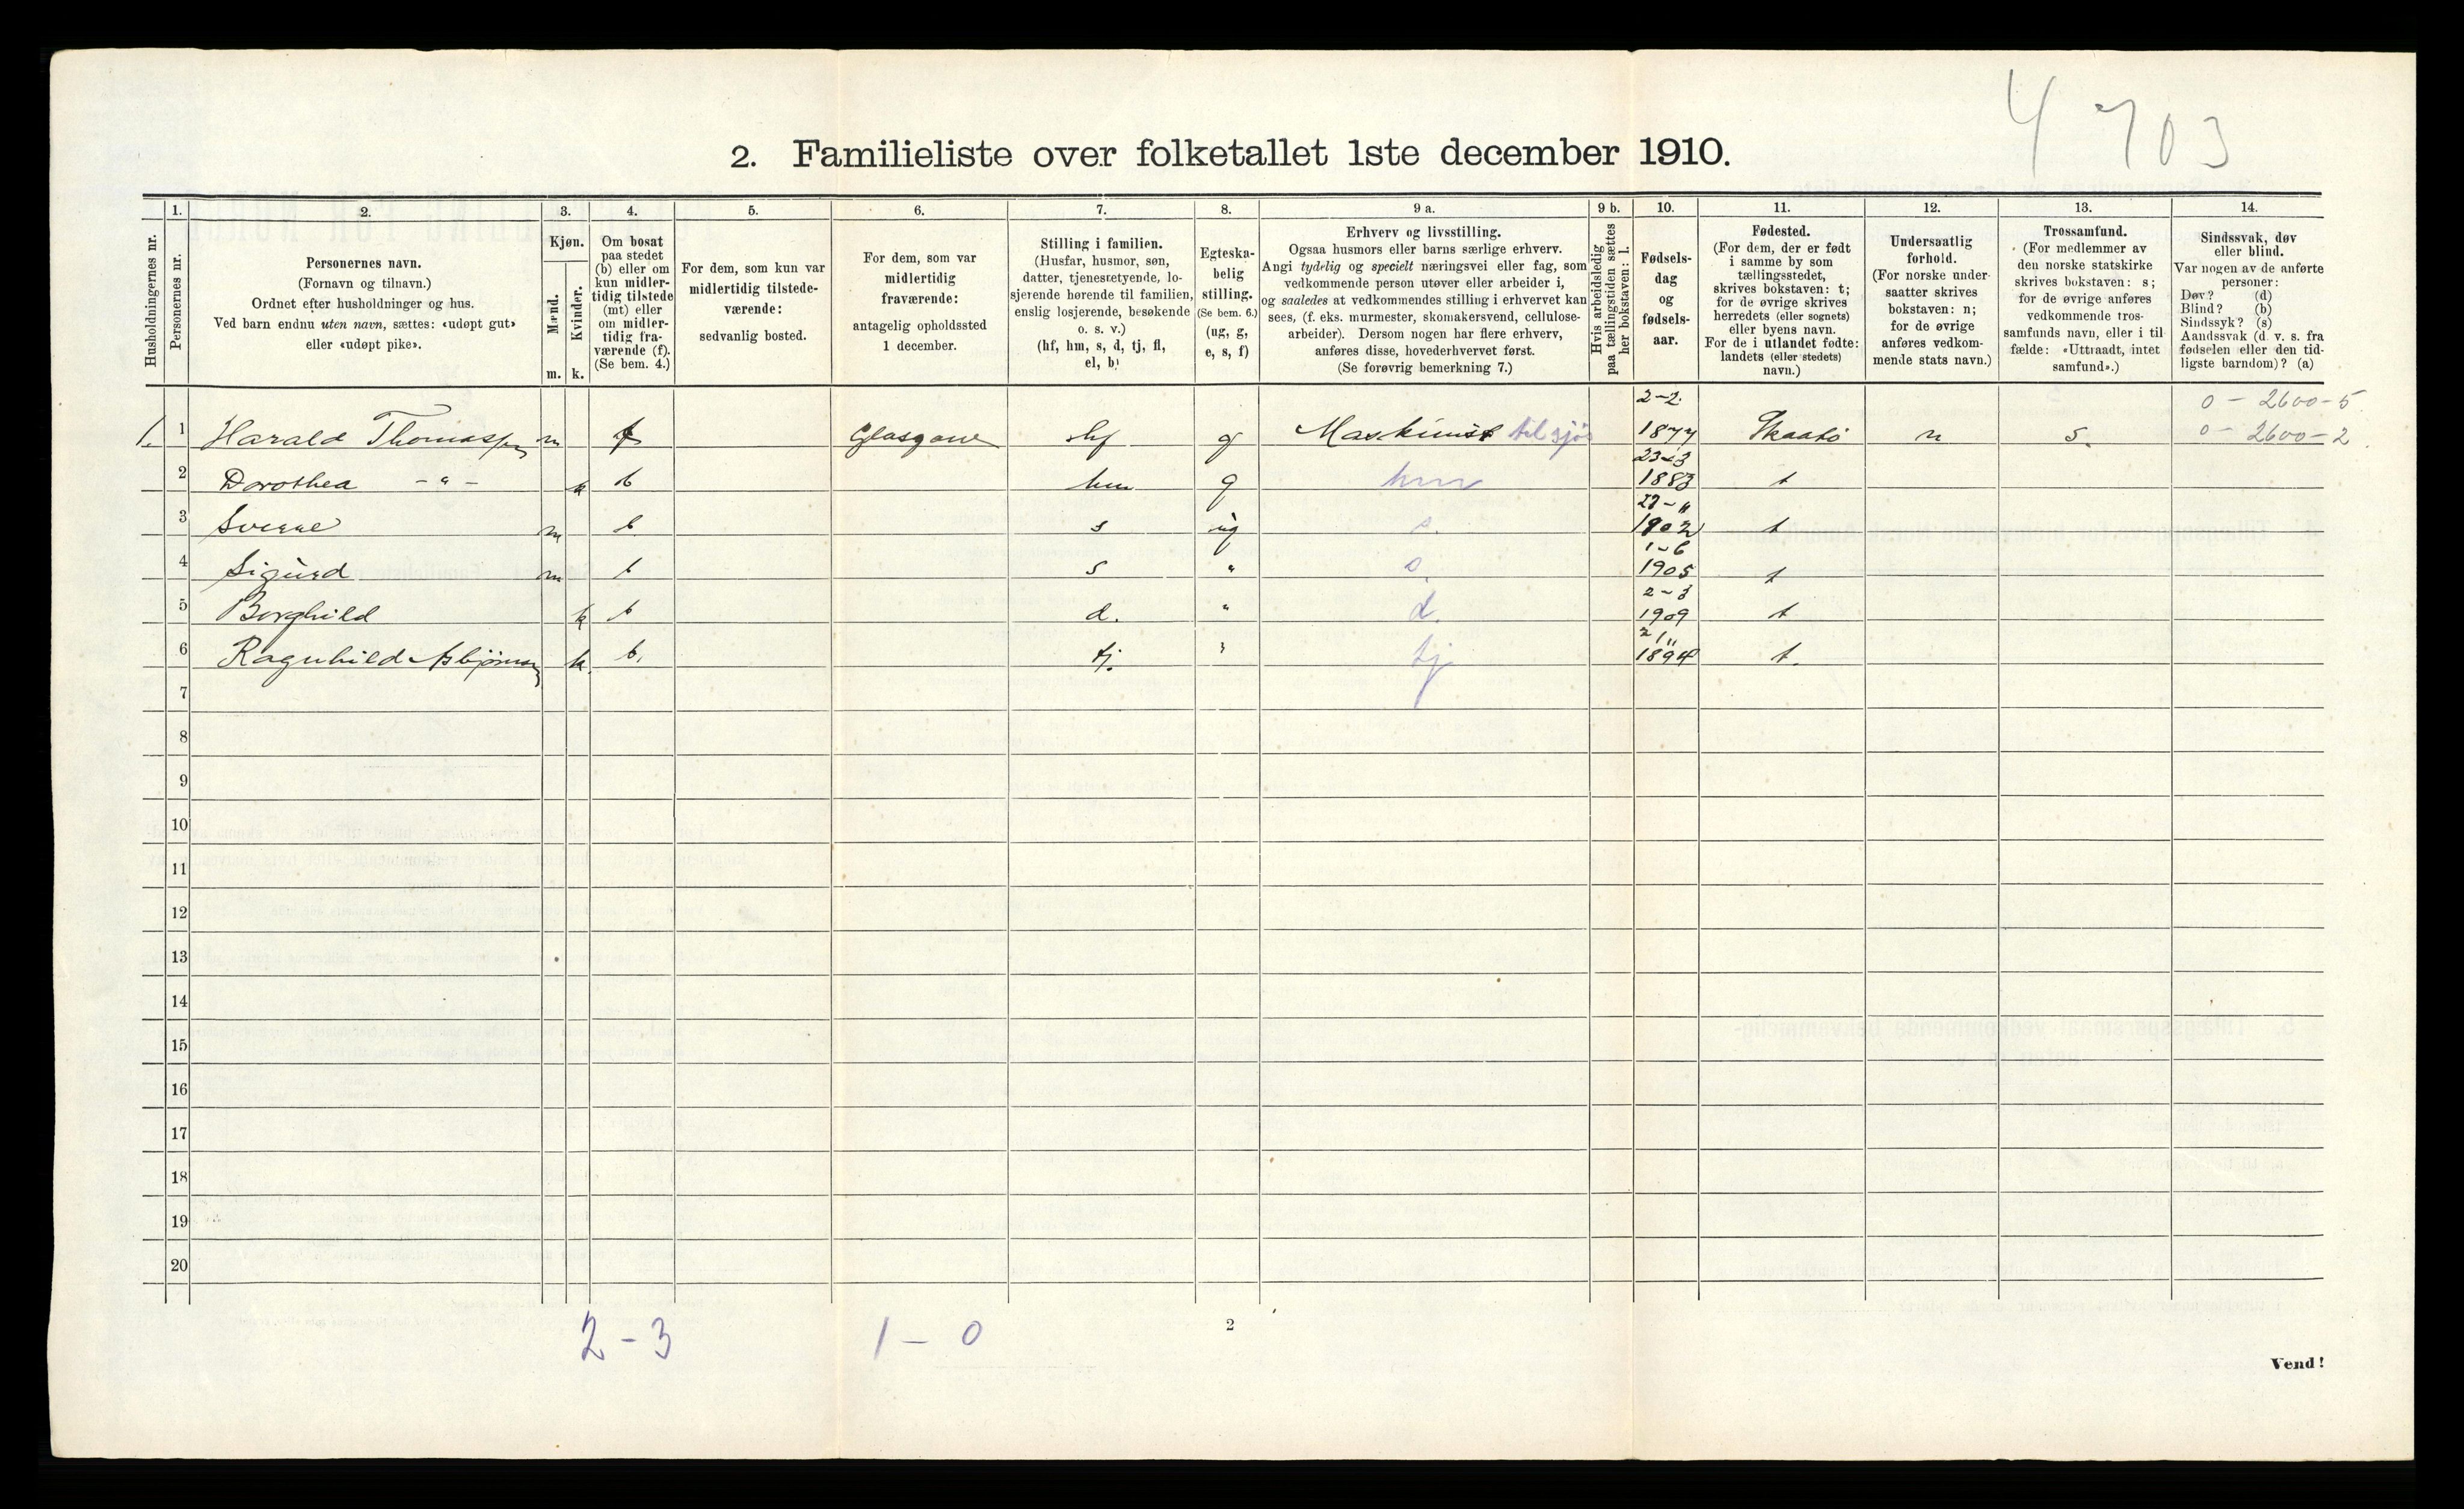 4 703
2. Familieliste over folketallet 1ste december 1910.
Husholdningernes nr.
1.
Personernes nr.
2.
Personernes navn.
(Fornavn og tilnavn.)
Ordnet efter husholdninger og hus.
Ved barn endnu uten navn, sættes: «udøpt gut»
eller «udøpt pike».
3.
Kjøn.
Mænd.
m.
Kvinder.
k.
4.
Om bosat
paa stedet
(b) eller om
kun midler-
tidig tilstede
(mt) eller
om midler-
tidig fra-
værende (f).
(Se bem. 4.)
5.
For dem, som kun var
midlertidig tilstede-
værende:
sedvanlig bosted.
6.
For dem, som var
midlertidig
fraværende:
antagelig opholdssted
1 december.
7.
Stilling i familien.
(Husfar, husmor, søn,
datter, tjenestetyende, lo-
sjerende hørende til familien,
enslig losjerende, besøkende
o. s. v.)
(hf, hm, s, d, tj, fl,
el, b)
8.
Egteska-
belig
stilling.
(Se bem. 6.)
(ug, g,
e, s, f)
9 a.
Erhverv og livsstilling.
Ogsaa husmors eller barns særlige erhverv.
Angi tydelig og specielt næringsvei eller fag, som
vedkommende person utøver eller arbeider i,
og saaledes at vedkommendes stilling i erhvervet kan
sees, (f. eks. murmester, skomakersvend, cellulose-
arbeider). Dersom nogen har flere erhverv,
anføres disse, hovederhvervet først.
(Se forøvrig bemerkning 7.)
9 b.
Hvis arbeidsledig
paa tællingstiden sættes
her bokstaven: l.
10.
Fødsels-
dag
og
fødsels-
aar.
11.
Fødested.
(For dem, der er født
i samme by som
tællingsstedet,
skrives bokstaven: t;
for de øvrige skrives
herredets (eller sognets)
eller byens navn.
For de i utlandet fødte:
landets (eller stedets)
navn.)
12.
Undersaatlig
forhold.
(For norske under-
saatter skrives
bokstaven: n;
for de øvrige
anføres vedkom-
mende stats navn.)
13.
Trossamfund.
(For medlemmer av
den norske statskirke
skrives bokstaven: s;
for de øvrige anføres
vedkommende tros-
samfunds navn, eller i til-
fælde: «Uttraadt, intet
samfund».)
14.
Sindssvak, døv
eller blind.
Var nogen av de anførte
personer:
Døv? (d)
Blind? (b)
Sindssyk? (s)
Aandssvak (d. v. s. fra
fødselen eller den tid-
ligste barndom)? (a)
2-2. 0 - 2600-5
1. 1 Harald Thomassen m f Glasgow hf g Maskinist til sjøs 1877 Skaatø n s. 0 - 2600-2
23-3
2 Dorothea -"- k b hm g hm 1883 t
3 Sverre m b s ug s. 1902 t
1-6
4 Sigurd m b s " s. 1905 t
2-3
5 Borghild k b d. " d. 1909 t
6 Ragnhild Asbjørnsen k. b. tj. " tj 1894 t.
7
8
9
10
11
12
13
14
15
16
17
18
19
20
2 - 3 1 - 0
2
Vend!